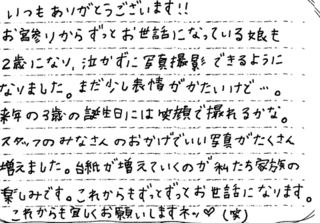 いつもありがとうございます!!
お宮参りからずっとお世話になっている娘も
2歳になり、泣かずに写真撮影できるように
なりました。まだ少し表情がかたいけど…。
来年の3歳の誕生日には笑顔で撮れるかな。
スタッフのみなさんのおかげでいい写真がたくさん
増えました。台紙が増えていくのが私たち家族の
楽しみです。これからもずっとずっとお世話になります。
これからも宜しくお願いしますネッ♡(笑)